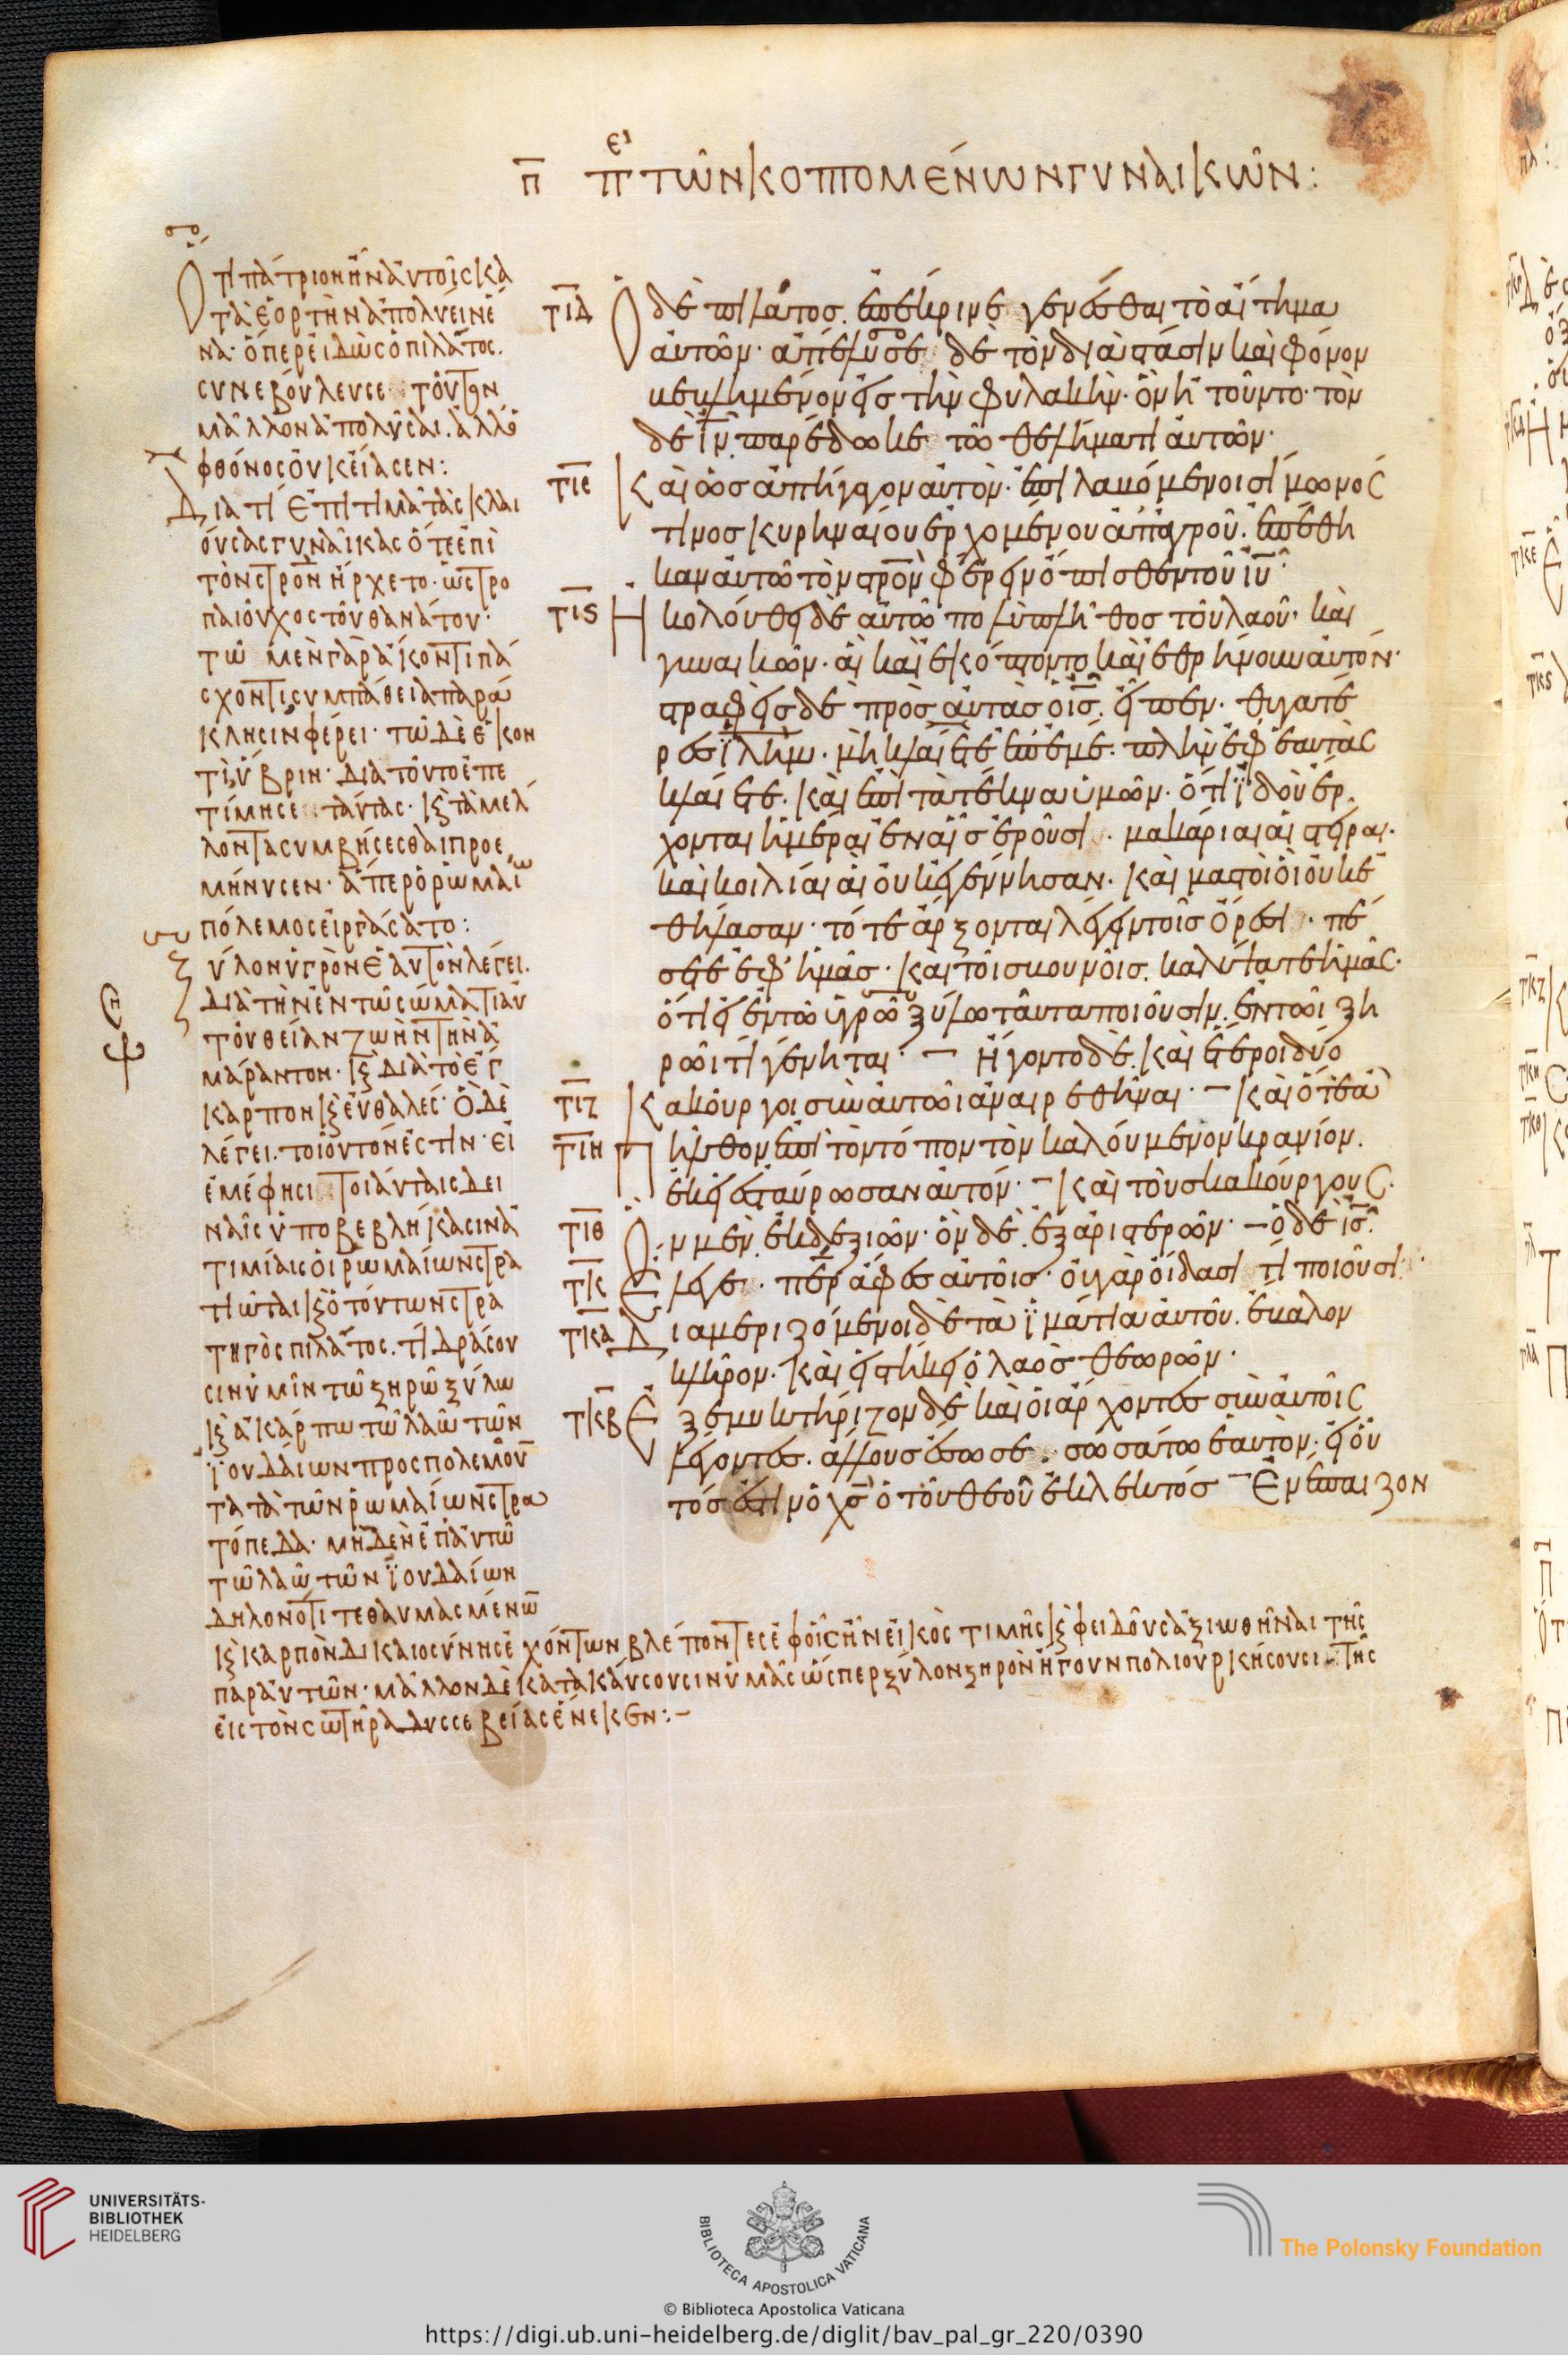 π̅ πει τῶν κοπτομένων γυναικῶν:
Ὅτι πάτριον ἦν αὐτοῖς κα
τὰ ἑορτὴν ἀπολύειν ἕ
να· ὅπερ εἰδὼς ὁ πιλάτος.
συνεβούλευσε τοῦτον
μᾶλλον ἀπολῦσαι. ἀλλ ὁ
φθόνος οὐκ εἴασεν:
Διατί ἐπιτιμᾶ τὰς κλαι
ούσας γυναῖκας ὅτε ἐπὶ
τὸν στρον ἤρχετο· ὡς τρο
παιοῦχος τοῦ θανάτου·
τῶ μὲν γὰρ ἄκοντι πά
σχοντι συμπάθεια παρά
κλησιν φέρει· τῶ δὲ ἑκόν
τι, ὕβριν· διατοῦτο ἐπε
τίμησε ταύτας· κ τὰ μέλ
λοντα συμβήσεσθαι προε
μήνυσεν· ἅπερ ὁ ῥωμαίω
πόλεμος εἰργάσατο:
ξύλον ὑγρὸν ἑαυτὸν λέγει.
διὰ τὴν ἐν τῶ σώματι αυ
τοῦ θείαν ζωὴν τὴν ἀ
μάραντον· κ διὰ τὸ ἔγ
καρπον κ εὐθαλές· ὃ δὲ
λέγει. τοιοῦτόν ἐστιν· εἰ
ἐμέ φησι τοιαύταις δει
ναῖς ὑποβεβλήκασιν ἀ
τιμίαις οἱ ῥωμαίων στρα
τιῶται κ ὁ τούτων στρα
τηγὸς πιλάτος. τί δράσου
σιν ὑμῖν τῶ ξηρῶ ξύλω
κ ἀκάρπω τῶ λαῶ τῶν
ϊουδαίων προσπολεμοῦν
τα τὰ τῶν ῥωμαίων στρα
τόπεδα· μηδὲν ἐπ αὐτῶ
τῶ λαῶ τῶν ϊουδαίων
δηλονότι τεθαυμασμένω
κ καρπὸν δικαιοσύνης ἐχόντων βλέποντες ἐφ οἷς ἦν εἰκὸς τιμῆς κ φειδοῦς ἀξιωθῆναι τῆς
παρ αὐτῶν· μᾶλλον δὲ κατακαύσουσιν ὑμᾶς ὥσπερ ξύλον ξηρὸν ἤγουν πολιορκήσουσι τῆς
εἰς τὸν σωτῆρα δυσσεβείας ἕνεκεν:–
τιδ Ὁ δὲ πιλάτος. ἐπέκρινε γενέσθαι τὸ αἴτημα
αὐτῶν· ἀπέλυσε δὲ τὸν διὰ στάσιν καὶ φόνον
βεβλημένον εἰς τὴν φυλακήν· ὃν ἠτοῦντο· τὸν
δὲ ι̅ν̅ παρέδωκε τῶ θελήματι αὐτῶν·
τιε Καὶ ὡς ἀπήγαγον αὐτὸν. ἐπιλαβόμενοι σίμωνος
τινος κυρηναίου ἐρχομένου ἀπ ἀγροῦ. ἐπέθη
καν αὐτῶ τὸν στρον φέρειν ὄπισθεν τοῦ ι̅υ̅·
τις Ηκολούθει δὲ αὐτῶ πολὺ πλῆθος τοῦ λαοῦ· καὶ
γυναικῶν. αἳ καὶ ἐκόπτοντο καὶ ἐθρήνουν αὐτόν·
στραφεὶς δὲ πρὸς αὐτὰς ὁ ι̅ς̅. εἶπεν· θυγατέ
ρες ι̅λ̅η̅μ̅. μὴ κλαίετε ἐπ ἐμέ· πλὴν ἐφ ἑαυτὰς
κλαίετε. καὶ ἐπὶ τὰ τέκνα ὑμῶν· ὅτι ϊδοὺ ἔρ
χονται ἡμέραι ἐν αἷς ἐροῦσι· μακάριαι αἱ στεῖραι.
καὶ κοιλίαι αἳ οὐκ ἐγέννησαν· καὶ μαστοὶ οἳ οὐκ ἐ
θήλασαν· τότε ἄρξονται λέγειν τοῖς ὄρεσι· πέ
σετε ἐφ ἡμᾶς· καὶ τοῖς βουνοῖς. καλύψατε ἡμᾶς·
ὅτι εἰ ἐν τῶ ὑγρῶ ξύλω ταῦτα ποιοῦσιν. ἐν τῶι ξη
ρῶι τί γένηται· – Ἤγοντο δὲ καὶ ἕτεροι δύο
τιζ Κακοῦργοι σὺν αὐτῶι ἀναιρεθῆναι· – Καὶ ὅτε ἀ
τιη Πῆλθον ἐπὶ τὸν τόπον τὸν καλούμενον κρανίον.
ἐκεῖ ἐσταύρωσαν αὐτόν· – Καὶ τοὺς κακούργους.
τιθ Ὃν μὲν ἐκ δεξιῶν· ὃν δὲ ἐξ ἀριστερῶν· – ὁ δὲ ι̅ς̅
τκ Ἔλεγε· περ ἄφες αὐτοῖς· οὐ γὰρ οἴδασι τί ποιοῦσι·
τκα Διαμεριζόμενοι δὲ τὰ ϊμάτια αὐτοῦ. ἔβαλον
κλῆρον. Καὶ εἱστήκει ὁ λαὸς θεωρῶν·
τκβ Ἐξεμυκτήριζον δὲ καὶ οἱ ἄρχοντες σὺν αὐτοῖς
λέγοντες. ἄλλους ἔσωσε. σωσάτω ἑαυτὸν· εἰ οὗ
τός ἐστιν ὁ χ̅ς̅ ὁ τοῦ θεοῦ ἐκλεκτός – Ἐνέπαιζον
UNIVERSITÄTS-
BIBLIOTHEK
HEIDELBERG
BIBLIOTECA APOSTOLICA VATICANA
The Polonsky Foundation
© Biblioteca Apostolica Vaticana
https://digi.ub.uni-heidelberg.de/diglit/bav_pal_gr_220/0390